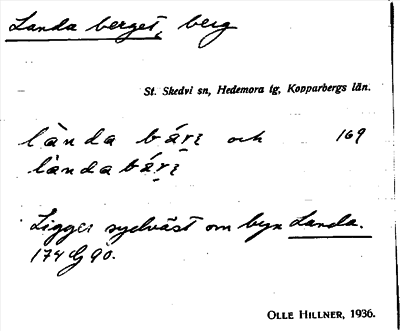 Landa berget, berg
St. Skedvi sn, Hedemora tg, Kopparbergs län.
lànda bár̥ɪ och 169
làndabár̥ɪ
Ligger sydväst om byn Landa.
174 G 90.
OLLE HILLNER, 1936.